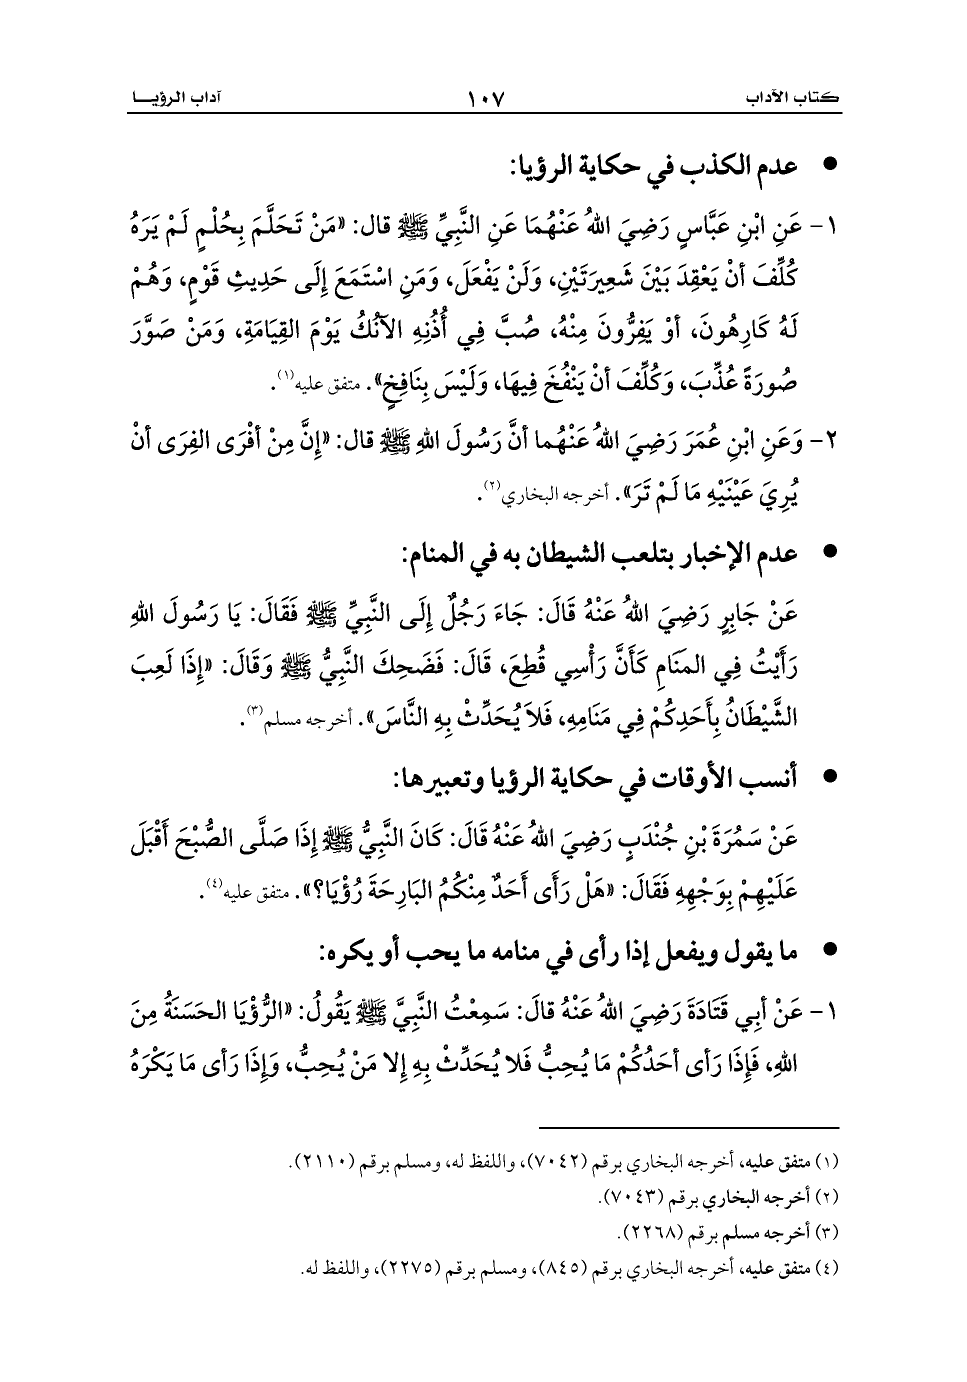 كتاب الآداب ١٠٧ آداب الرؤيـــا
● عدم الكذب في حكاية الرؤيا:
١- عَنِ ابْنِ عَبَّاسٍ رَضِيَ اللهُ عَنْهُمَا عَنِ النَّبِيِّ ﷺ قال: «مَنْ تَحَلَّمَ بِحُلْمٍ لَمْ يَرَهُ
كُلِّفَ أنْ يَعْقِدَ بَيْنَ شَعِيرَتَيْنِ، وَلَنْ يَفْعَلَ، وَمَنِ اسْتَمَعَ إلَى حَدِيثِ قَوْمٍ، وَهُمْ
لَهُ كَارِهُونَ، أوْ يَفِرُّونَ مِنْهُ، صُبَّ فِي أُذُنِهِ الآنُكُ يَوْمَ القِيَامَةِ، وَمَنْ صَوَّرَ
صُورَةً عُذِّبَ، وَكُلِّفَ أنْ يَنْفُخَ فِيهَا، وَلَيْسَ بِنَافِخٍ». متفق عليه(١).
٢- وَعَنِ ابْنِ عُمَرَ رَضِيَ اللهُ عَنْهُما أنَّ رَسُولَ اللهِ ﷺ قال: «إِنَّ مِنْ أفْرَى الفِرَى أنْ
يُرِيَ عَيْنَيْهِ مَا لَمْ تَرَ». أخرجه البخاري(٢).
● عدم الإخبار بتلعب الشيطان به في المنام:
عَنْ جَابِرٍ رَضِيَ اللهُ عَنْهُ قَالَ: جَاءَ رَجُلٌ إِلَى النَّبِيِّ ﷺ فَقَالَ: يَا رَسُولَ اللهِ
رَأَيْتُ فِي المنَامِ كَأَنَّ رَأْسِي قُطِعَ، قَالَ: فَضَحِكَ النَّبِيُّ ﷺ وَقَالَ: «إِذَا لَعِبَ
الشَّيْطَانُ بِأَحَدِكُمْ فِي مَنَامِهِ، فَلاَ يُحَدِّثْ بِهِ النَّاسَ». أخرجه مسلم(٣).
● أنسب الأوقات في حكاية الرؤيا وتعبيرها:
عَنْ سَمُرَةَ بْنِ جُنْدَبٍ رَضِيَ اللهُ عَنْهُ قَالَ: كَانَ النَّبِيُّ ﷺ إِذَا صَلَّى الصُّبْحَ أَقْبَلَ
عَلَيْهِمْ بِوَجْهِهِ فَقَالَ: «هَلْ رَأَى أَحَدٌ مِنْكُمُ البَارِحَةَ رُؤْيَا؟». متفق عليه(٤).
● ما يقول ويفعل إذا رأى في منامه ما يحب أو يكره:
١- عَنْ أبِي قَتَادَةَ رَضِيَ اللهُ عَنْهُ قالَ: سَمِعْتُ النَّبِيَّ ﷺ يَقُولُ: «الرُّؤْيَا الحَسَنَةُ مِنَ
اللهِ، فَإِذَا رَأى أحَدُكُمْ مَا يُحِبُّ فَلا يُحَدِّثْ بِهِ إلا مَنْ يُحِبُّ، وَإِذَا رَأى مَا يَكْرَهُ
(١) متفق عليه، أخرجه البخاري برقم (٧٠٤٢)، واللفظ له، ومسلم برقم (٢١١٠).
(٢) أخرجه البخاري برقم (٧٠٤٣).
(٣) أخرجه مسلم برقم (٢٢٦٨).
(٤) متفق عليه، أخرجه البخاري برقم (٨٤٥)، ومسلم برقم (٢٢٧٥)، واللفظ له.